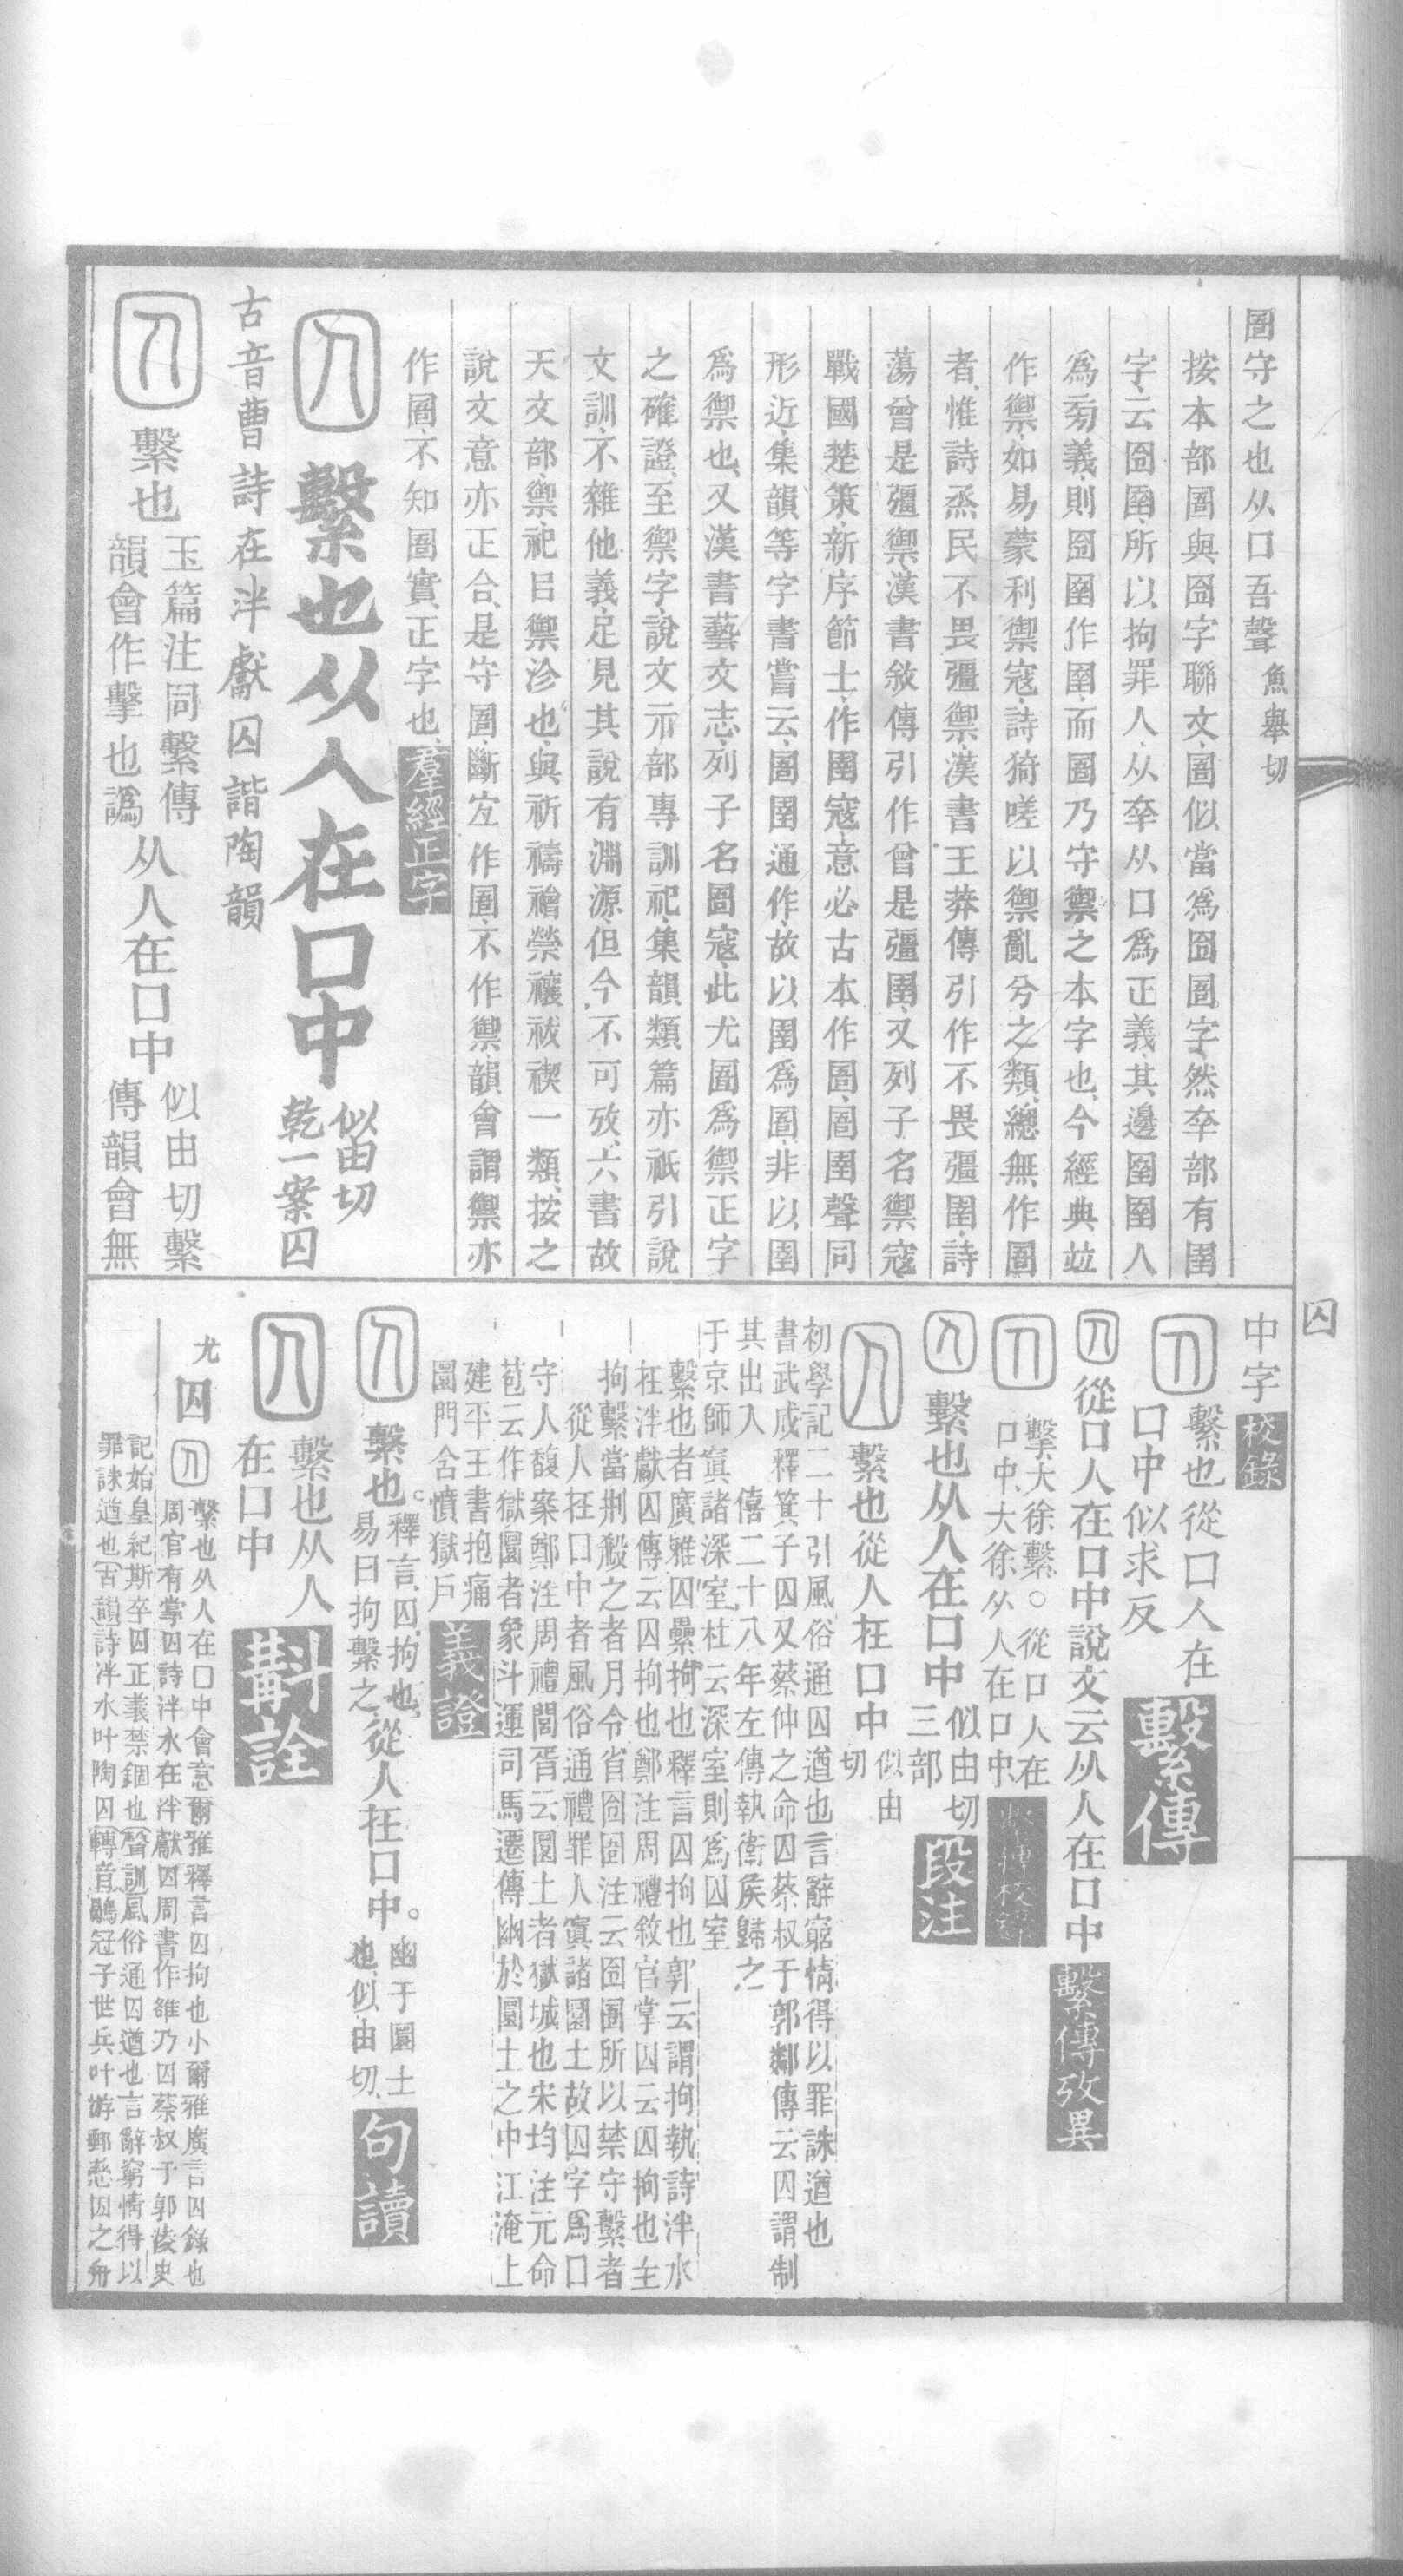 圄守之也从囗吾聲魚舉切
按本部圄與囹字聯文圄似當爲囹圄字然㚔部有圉
字云囹圉所以拘罪人从㚔从囗爲正義其邊圉圉人
爲㫄義則囹圉作圉而圄乃守禦之本字也今經典竝
作禦如易蒙利禦寇詩猗嗟以禦亂兮之類總無作圄
者惟詩烝民不畏彊禦漢書王莽傳引作不畏彊圉詩
蕩曾是彊禦漢書敘傳引作曾是彊圉又列子名禦寇
戰國楚策新序節士作圉寇意必古本作圄圄圉聲同
形近集韻等字書嘗云圄圉通作故以圉爲圄非以圉
爲禦也又漢書藝文志列子名圄寇此尤圄爲禦正字
之確證至禦字說文示部專訓祀集韻類篇亦祇引說
文訓不雜他義足見其說有淵源但今不可攷六書故
天文部禦祀㠯禦沴也與祈禱禬禜禳祓禊一類按之
說文意亦正合是守圄斷宐作圄不作禦韻會謂禦亦
作圄不知圄實正字也羣經正字
繫也从人在囗中似由切
乾一案囚
古音曹詩在泮獻囚諧陶韻
繫也玉篇注同繫傳
韻會作擊也譌从人在囗中似由切繫
傳韻會無
囚
中字校錄
繫也從囗人在
囗中似求反繫傳
從囗人在囗中說文云从人在囗中繫傳攷異
擊大徐繫○從囗人在
囗中大徐从人在囗中
繫也从人在囗中似由切
三部段注
繫也從人在囗中似由
切
初學記二十引風俗通囚遒也言辭窮情得以罪誅遒也
書武成釋箕子囚又蔡仲之命囚蔡叔于郭鄰傳云囚謂制
其出入 僖二十八年左傳執衛侯歸之
于京師寘諸深室杜云深室則爲囚室
繫也者廣雅囚纍拘也釋言囚拘也郭云謂拘執詩泮水
在泮獻囚傳云囚拘也鄭注周禮敘官掌囚云囚拘也主
拘繫當刑殺之者月令省囹圄注云囹圄所以禁守繫者
從人在囗中者風俗通禮罪人寘諸圜土故囚字爲囗
守人馥案鄭注周禮閭胥云圜土者獄城也宋均注元命
苞云作獄圜者象斗運司馬遷傳幽於圜土之中江淹上
建平王書抱痛
圜門含憤獄戶義證
繫也釋言囚拘也
易曰拘繫之從人在囗中。幽于圜土
也似由切句讀
繫也从人
在囗中斠詮
尤囚繫也从人在囗中會意爾雅釋言囚拘也小爾雅廣言囚錄也
周官有掌囚詩泮水在泮獻囚周書作雒乃囚蔡叔于郭淩史
記始皇紀斯卒囚正義禁錮也聲訓風俗通囚遒也言辭窮情得以
罪誅遒也古韻詩泮水叶陶囚轉音鶡冠子世兵叶游郵愁囚之舟